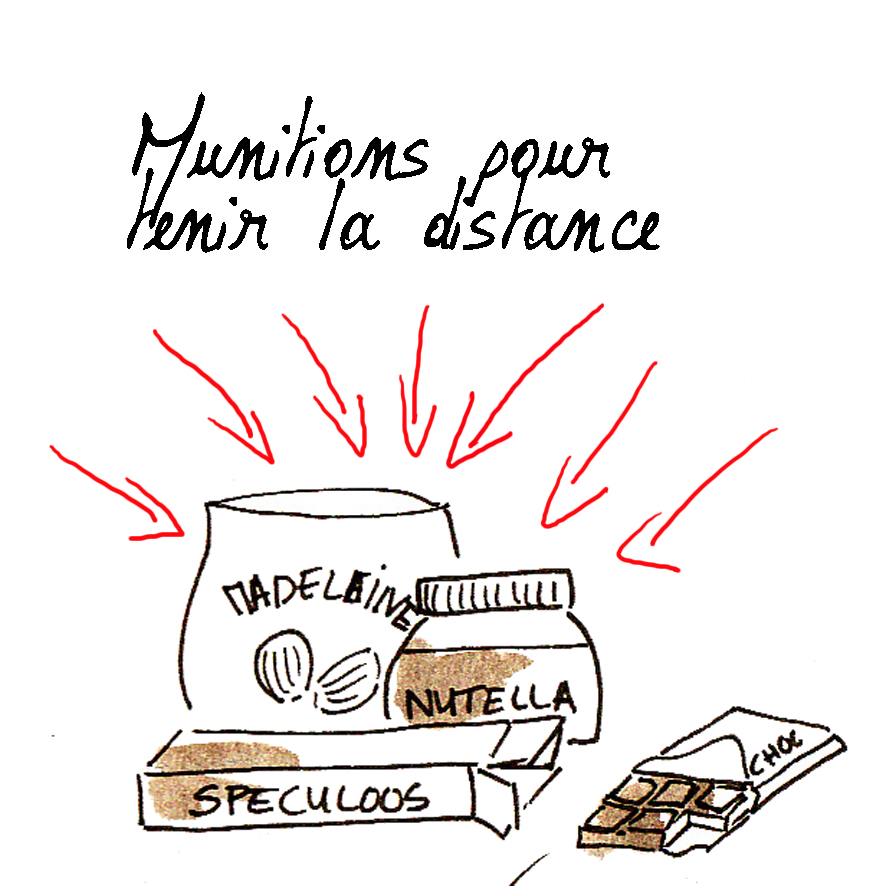 Munitions pour
tenir la distance
MADELEINE
NUTELLA
SPECULOOS
CHOC